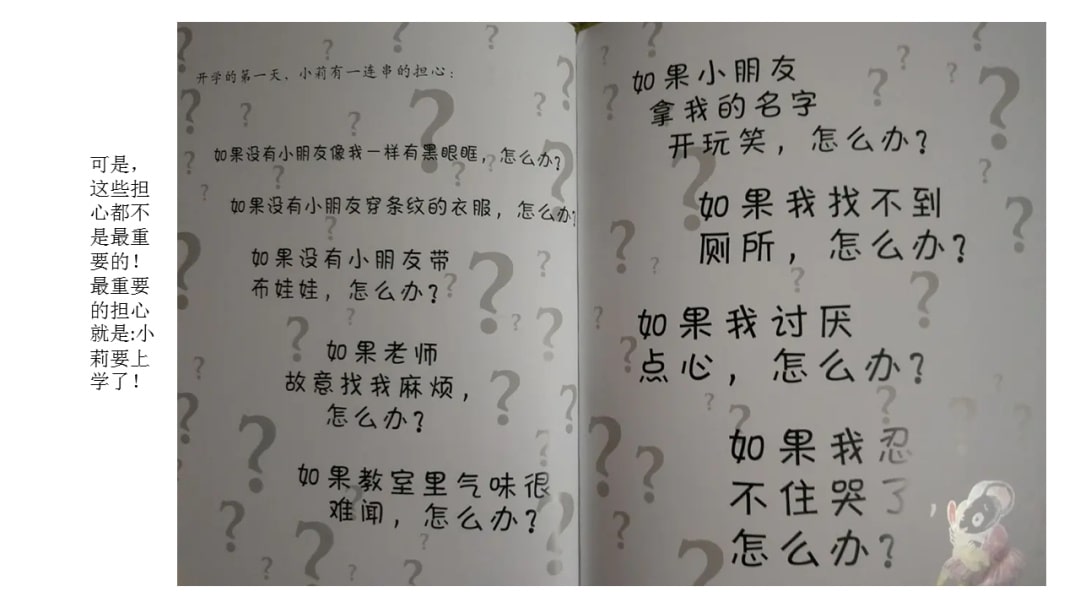 可是，
这些担
心都不
是最重
要的！
最重要
的担心
就是:小
莉要上
学了！
开学的第一天，小莉有一连串的担心：
如果没有小朋友像我一样有黑眼眶，怎么办？
如果没有小朋友穿条纹的衣服，怎么办？
如果没有小朋友带
布娃娃，怎么办？
如果老师
故意找我麻烦，
怎么办？
如果教室里气味很
难闻，怎么办？
如果小朋友
拿我的名字
开玩笑，怎么办？
如果我找不到
厕所，怎么办？
如果我讨厌
点心，怎么办？
如果我忍
不住哭了，
怎么办？